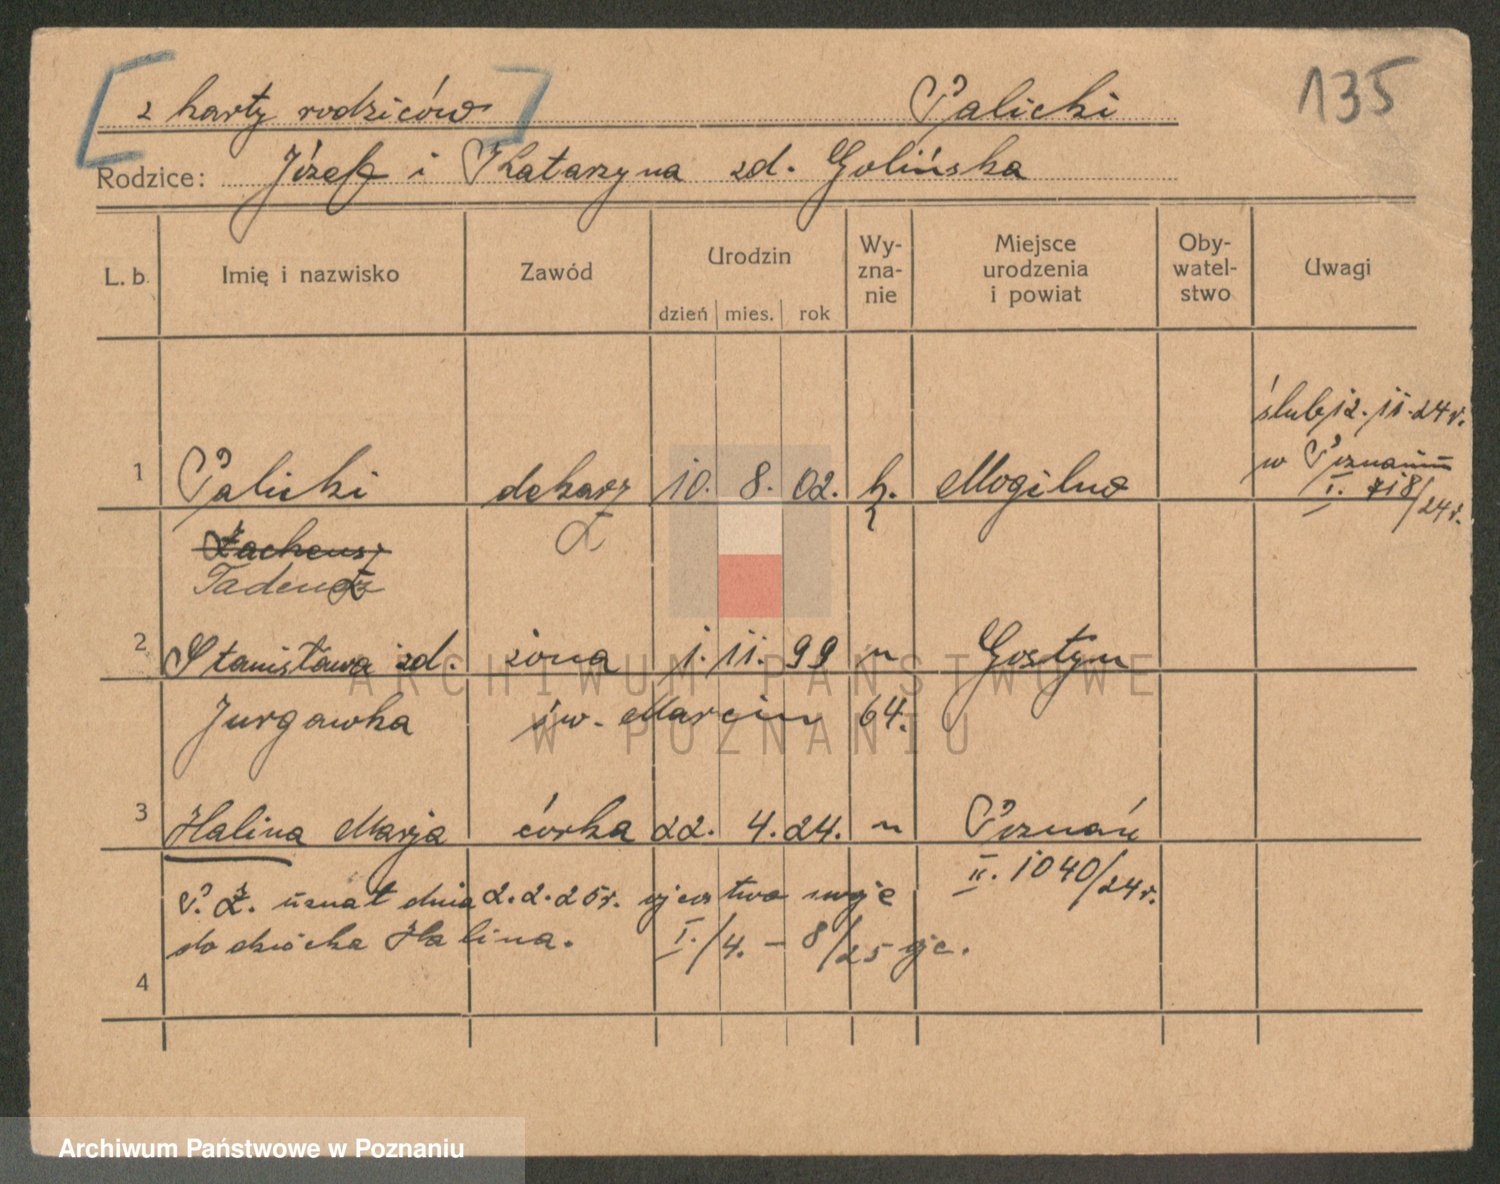 z karty rodziców Palicki 135
Rodzice: Józef i Katarzyna zd. Golińska
L. b. Imię i nazwisko Zawód Urodzin Wy-zna-nie Miejsce urodzenia i powiat Oby-watel-stwo Uwagi
dzień mies. rok
ślub 12. 11. 24 r.
w Poznaniu
1 Palicki dekarz 10. 8. 02. k. Mogilno
I. 718/24 r.
Zacheusz
Tadeusz
2 Stanisława zd. żona 1. 11. 99 " Gostyń
Jurgawka św. Marcin 64.
3 Halina Marja córka 22. 4. 24. " Poznań
II. 1040/24 r.
P. Z. uznał dnia 2.2.25 r. ojcostwo swoje
do dziecka Halina. I./4. - 8/25
4
ARCHIWUM PAŃSTWOWE
W POZNANIU
Archiwum Państwowe w Poznaniu